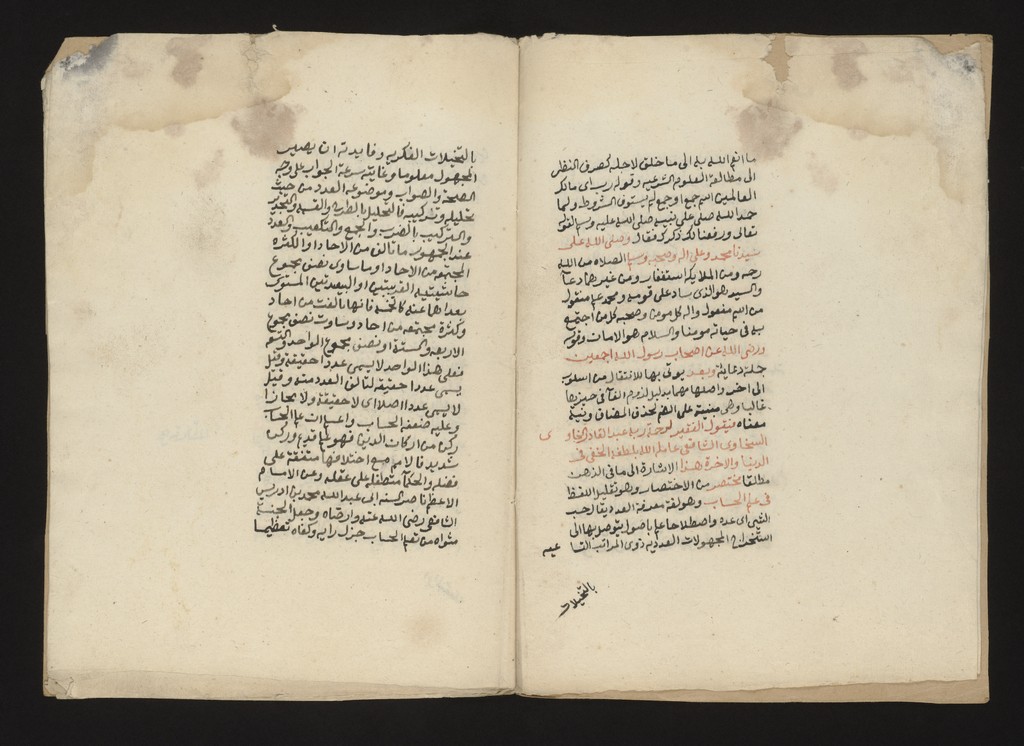 ما انعم الله به الى ما خلق لاجله كصرف النظر
الى مطالعة العلوم الشرعيه وقوله رب اى مالك
العالمين اسم جمع او جمع لم يستوف الشروط ولما
حمد الله صلى على نبيه صلى الله عليه وسلم لقوله
تعالى ورفعنا لك ذكرك فقال وصلى الله على
سيدنا محمد وعلى اله وصحبه وسلم الصلاه من الله
رحمه ومن الملايكه استغفار ومن غيرهما دعآ
والسيد هو الذى ساد على قومه ومحمد علم منقول
من اسم مفعول واله كل مومن وصحبه كل من اجتمع
به فى حياته مومنا والسلام هو الامان وقوله
ورضى الله عن اصحاب رسول الله اجمعين
جملة دعاية وبعد يوتى بها للانتقال من اسلوب
الى اخر واصلها مهما بدليل لزوم الفآ فى حيزها
غالبا وهى مبنية على الضم لحذف المضاف ونية
معناه فيقول الفقير لرحمة ربه عبد القادر
السخاوى الشافعى عامله الله بلطفه الخفى فى
الدنيا والاخرة هذا الاشارة الى ما فى الذهن
مطلقا مختصر من الاختصار وهو تقليل اللفظ
فى علم الحساب وهو لغة معرفة العدد يقال حسب
الشى اى عده واصطلاحا علم باصول يتوصل بها الى
استخراج المجهولات العدديه ذوى المراتب
بالتخيلات
بالتخيلات الفكريه وفايدته ان يصير
المجهول معلوما وغايته سرعة الجواب على وجه
الصحة والصواب وموضوعه العدد من حيث
تحليله وتركيبه فالتحليل بالطرح والقسمه والتجذير
والتركيب بالضرب والجمع والتكعيب والعدد
عند الجمهور ما تالف من الاحاد او الكثرة
المجتمعه من الاحاد او ما ساوى نصف مجموع
حاشيتيه القريبتين او البعيدتين المستوى
بعداها عنه كالخمسة فانها تالفت من احاد
وكثرة مجتمعه من احاد وساوت نصف مجموع
الاربعه والستة او نصف مجموع الواحد والتسعه
فعلى هذا الواحد لا يسمى عددا حقيقة وقيل
يسمى عددا حقيقة لتالف العدد منه وقيل
لا يسمى عددا اصلا اى لا حقيقة ولا مجازا
وعليه ضعفه الحساب واعلم ان علم الحساب
ركن من اركان الدين فهو علم قديم وركن
شديد فالامم مع اختلافها متفقة على
فضله والحكمآ متطفلة على عقله وعن الامام
الاعظم ناصر السنه ابى عبد الله محمد بن ادريس
الشافعى رضى الله عنه وارضاه وجعل الجنة
مثواه من تعلم الحساب جزل رايه وكفاه تعظيما